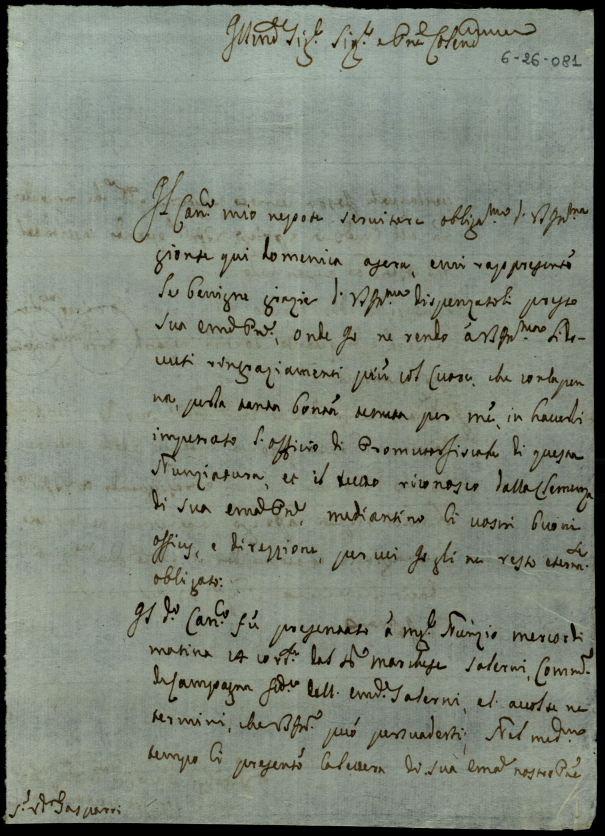 Ill.mo Sig.r Sig.r e Pne Col.mo
6-26-081
Il Can.co mio nepote servitore obliga.mo di V.S.Ill.ma
gionse qui domenica a sera, e mi rappresentò
le benigne grazie di V.S.Ill.ma dispenzateli presso
sua Em.za Pne, onde Io ne rendo à V.S.Ill.ma li do-
vuti ringraziamenti più col cuore, che con la pen-
na, per la tanta bontà tenuta per me, in haverli
impetrato l'officio di Promotorfiscale di questa
Nunziatura, et il tutto riconosco dalla Clemenza
di sua Em.za Pne, mediantino li vostri buoni
officij, e direzzione, per cui Io gli ne resto eterna.te
obligato:
Il d.o Can.co fù presentato à Mg.r Nunzio mercordì
matina 14 corr.te dal S.r Marchese Salerni,
di Campagna dell' Em.o Salerni, et accolse ne
termini, che V.S.Ill. può persuadersi, Nel med.mo
tempo li presentò la lettera di sua Em.za nostro Pne
Gasparri